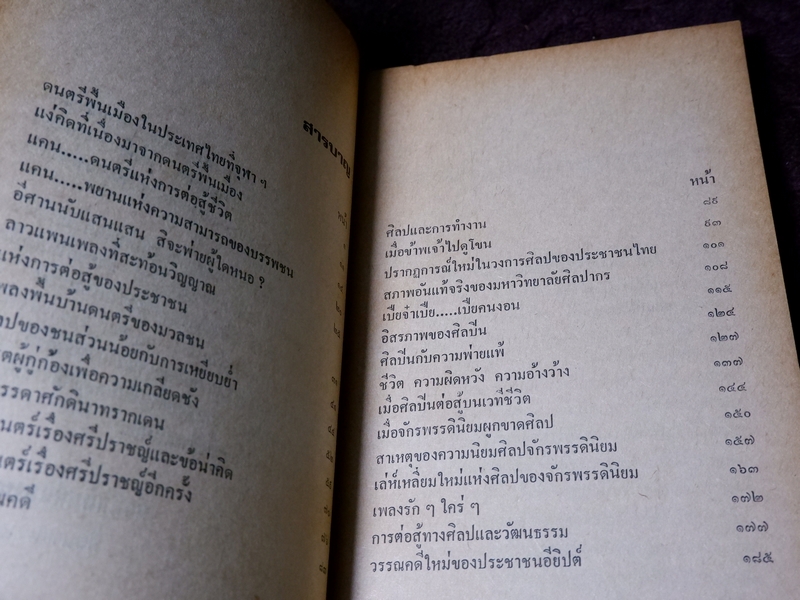 สารบาญ
หน้า
ดนตรีพื้นเมืองในประเทศไทยที่จุฬา ฯ
แง่คิดที่เนื่องมาจากดนตรีพื้นเมือง
แคน.....ดนตรีแห่งการต่อสู้ชีวิต
แคน.....พยานแห่งความสามารถของบรรพชน
อีศานนับแสนแสน สิจะพ่ายผู้ใดหนอ ?
ลาวแพนเพลงที่สะท้อนวิญญาณ
แห่งการต่อสู้ของประชาชน
เพลงพื้นบ้านดนตรีของมวลชน
ของชนส่วนน้อยกับการเหยียบย่ำ
ผู้กู่ก้องเพื่อความเกลียดชัง
ศักดินาทรากเดน
เรื่องศรีปราชญ์และข้อน่าคิด
เรื่องศรีปราชญ์อีกครั้ง
หน้า
ศิลปและการทำงาน ๘๙
เมื่อข้าพเจ้าไปดูโขน ๙๓
ปรากฏการณ์ใหม่ในวงการศิลปของประชาชนไทย ๑๐๑
สภาพอันแท้จริงของมหาวิทยาลัยศิลปากร ๑๐๘
เปี๋ยจำเปี๋ย.....เปี๋ยคนงอน ๑๑๕
อิสรภาพของศิลปิน ๑๒๔
ศิลปินกับความพ่ายแพ้ ๑๒๗
ชีวิต ความผิดหวัง ความอ้างว้าง ๑๓๗
เมื่อศิลปินต่อสู้บนเวทีชีวิต ๑๔๔
เมื่อจักรพรรดินิยมผูกขาดศิลป ๑๕๐
สาเหตุของความนิยมศิลปจักรพรรดินิยม ๑๕๗
เล่ห์เหลี่ยมใหม่แห่งศิลปของจักรพรรดินิยม ๑๖๓
เพลงรัก ๆ ใคร่ ๆ ๑๗๒
การต่อสู้ทางศิลปและวัฒนธรรม ๑๗๗
วรรณคดีใหม่ของประชาชนอียิปต์ ๑๘๕